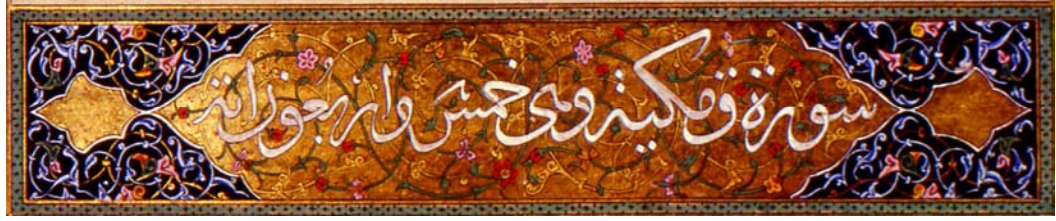 سورة ق مكية وهى خمس واربعون اية